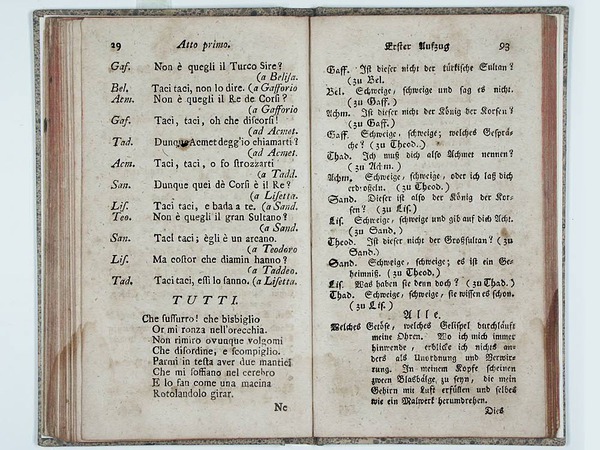 29 Atto primo.
Gaf. Non è quegli il Turco Sire?
(a Belisa.
Bel. Taci taci, non lo dire. (a Gafforio
Acm. Non è quegli il Re de Corsi?
(a Gafforio
Gaf. Taci, taci, oh che discorsi!
(ad Acmet.
Tad. Dunque Acmet degg'io chiamarti?
(ad Acmet.
Acm. Taci, taci, o fo strozzarti
(a Tadd.
San. Dunque quei dè Corsi è il Re?
(a Lisetta.
Lis. Taci taci, e bada a te. (a Sand.
Teo. Non è quegli il gran Sultano?
(a Sand.
San. Taci taci; ègli è un arcano.
(a Teodoro
Lis. Ma costor che diamin hanno?
(a Taddeo.
Tad. Taci taci, essi lo sanno. (a Lisetta.
TUTTI.
Che sussurro! che bisbiglio
Or mi ronza nell'orecchia.
Non rimiro ovunque volgomi
Che disordine, e scompiglio.
Parmi in testa aver due mantici
Che mi soffiano nel cerebro
E lo fan come una macina
Rotolandolo girar.
Ne
Erster Aufzug 93
Gaff. Ist dieser nicht der türkische Sultan?
(zu Bel.
Bel. Schweige, schweige und sag es nicht.
(zu Gaff.)
Achm. Ist dieser nicht der König der Korsen?
(zu Gaff.)
Gaff. Schweige, schweige; welches Gesprä-
che? (zu Theod.)
Thad. Ich muß dich also Achmet nennen?
(zu Achm.)
Achm. Schweige, schweige, oder ich laß dich
erdroßeln. (zu Theod.)
Sand. Dieser ist also der König der Kor-
sen? (zu Lis.)
Lis. Schweige, schweige und gib auf dich Acht.
(zu Sand.)
Theod. Ist dieser nicht der Großsultan? (zu
Sand.)
Sand. Schweige, schweige; es ist ein Ge-
heimniß. (zu Theod.)
Lis. Was haben sie denn doch? (zu Thad.)
Thad. Schweige, schweige, sie wissen es schon.
(zu Lis.)
Alle.
Welches Getöse, welches Gelispel durchläuft
meine Ohren. Wo ich mich immer
hinwende, erblicke ich nichts an-
ders als Unordnung und Verwir-
rung. In meinem Kopfe scheinen
zween Blasbälge zu seyn, die mein
Gehirn mit Luft erfüllen und selbes
wie ein Malwerk herumdrehen.
Dies